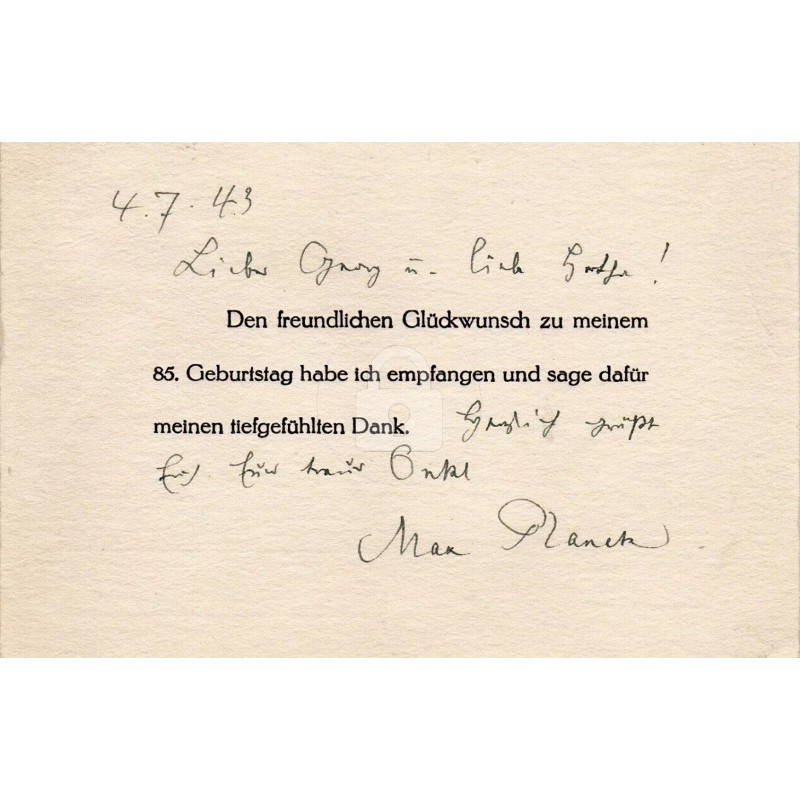 4. 7. 43
Lieber Georg u. liebe Hertha!
Den freundlichen Glückwunsch zu meinem
85. Geburtstag habe ich empfangen und sage dafür
meinen tiefgefühlten Dank. Herzlich grüßt
Euch Euer treuer Onkel
Max Planck